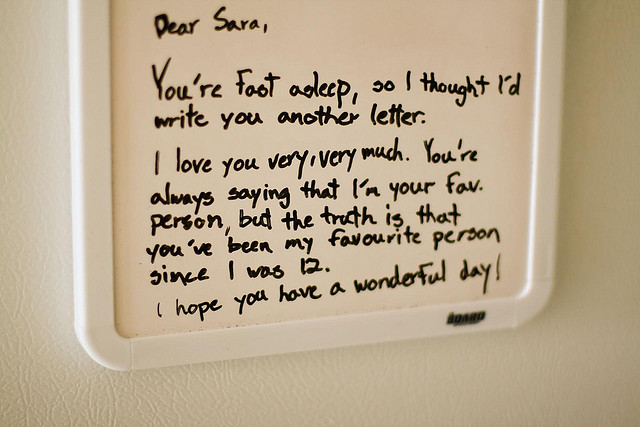 Dear Sara,
You're Fast asleep, so I thought I'd
write you another letter.
I love you very, very much. You're
always saying that I'm your fav.
person, but the truth is that
you've been my favourite person
since I was 12.
I hope you have a wonderful day!
BOARD